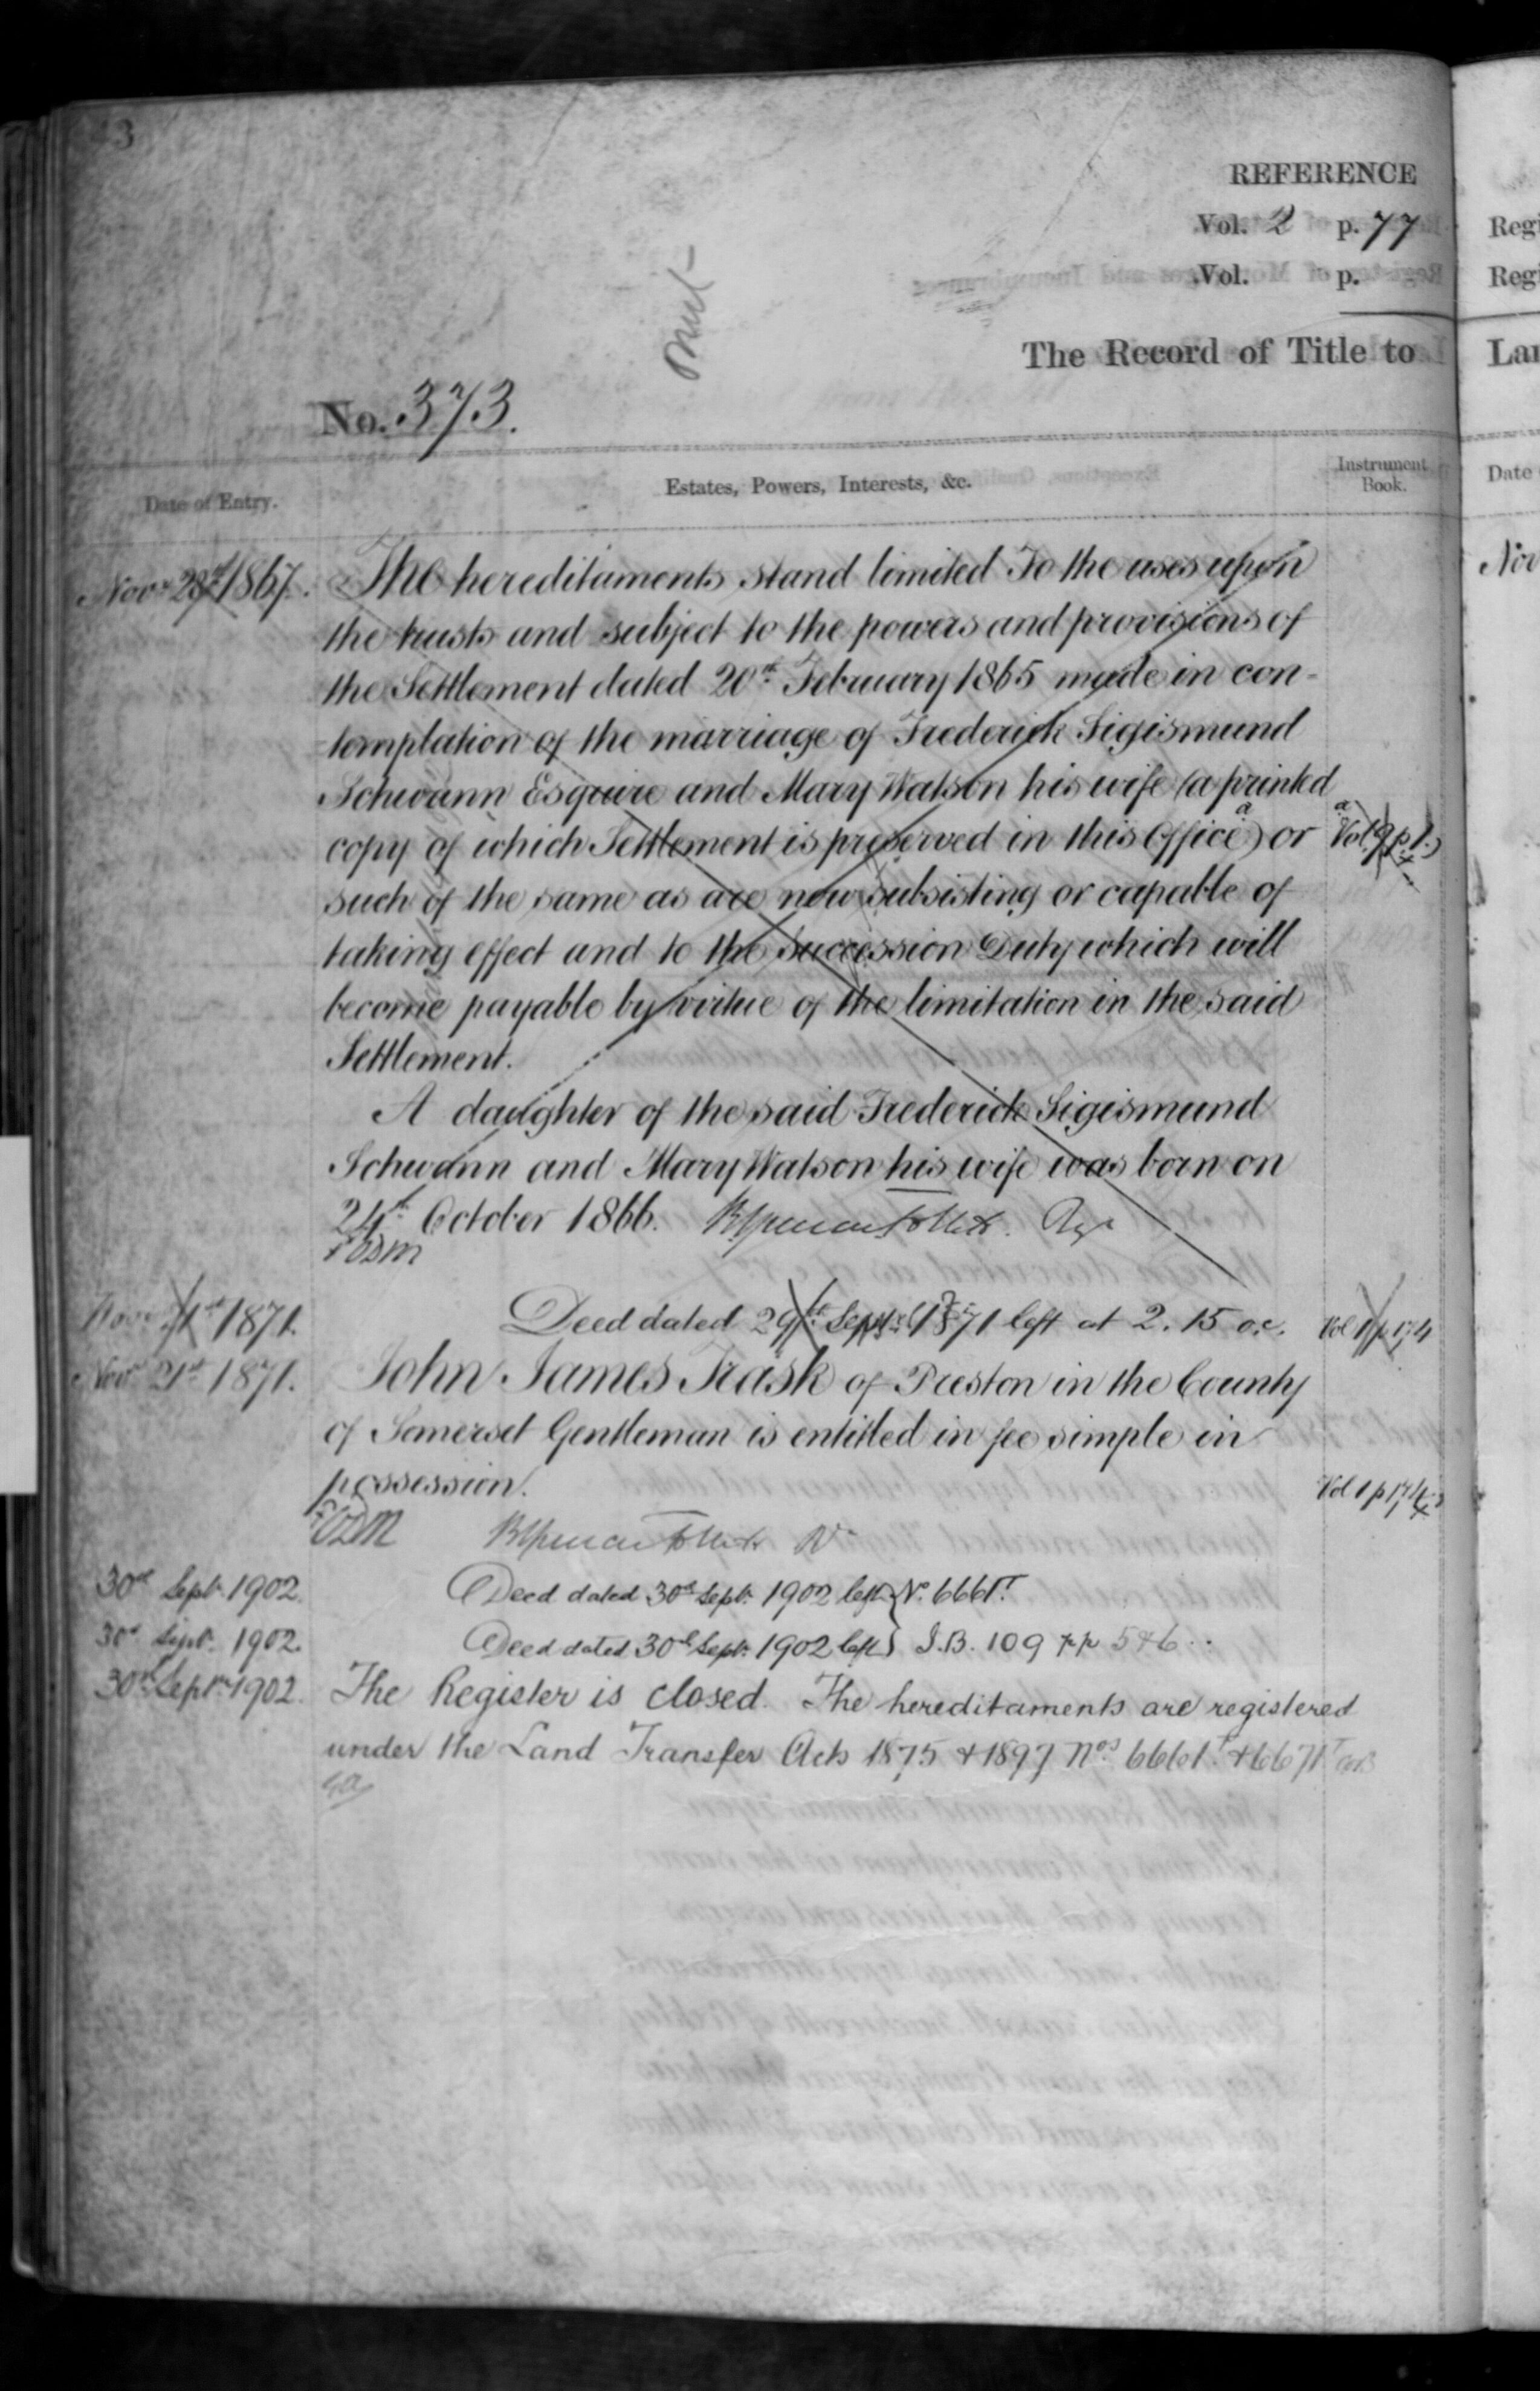 REFERENCE
Vol. 2 p. 77
Vol. p.
The Record of Title to
No. 373.
Date of Entry.
Estates, Powers, Interests, &c.
Instrument Book.
Novr 1867. The hereditaments stand limited To the uses upon
the trusts and subject to the powers and provisions of
the Settlement dated 20th February 1865 made in con-
templation of the marriage of Frederick Sigismund
Schwann Esquire and Mary Watson his wife (a printed
copy of which Settlement is preserved in this Office a) or
a Vol 9 p 1.
such of the same as are now subsisting or capable of
taking effect and to the Succession Duty which will
become payable by virtue of the limitation in the said
Settlement.
A daughter of the said Frederick Sigismund
Schwann and Mary Watson his wife was born on
24th October 1866.
Novr 21st 1871. Deed dated 29th Septr 1871 left at 2.15 o.c. Vol 1 p 174
Novr 21st 1871. John James Trask of Preston in the County
of Somerset Gentleman is entitled in fee simple in
possession. Vol 1 p 174
30th Sept. 1902. Deed dated 30th Sept. 1902 left } No. 6661T.
30th Sept. 1902. Deed dated 30th Sept. 1902 left } I.B. 109 pp 5 & 6
30th Septr 1902. The Register is closed. The hereditaments are registered
under the Land Transfer Acts 1875 & 1897 Nos 6661T & 6671T
Reg
Reg
Lan
Date
Nov